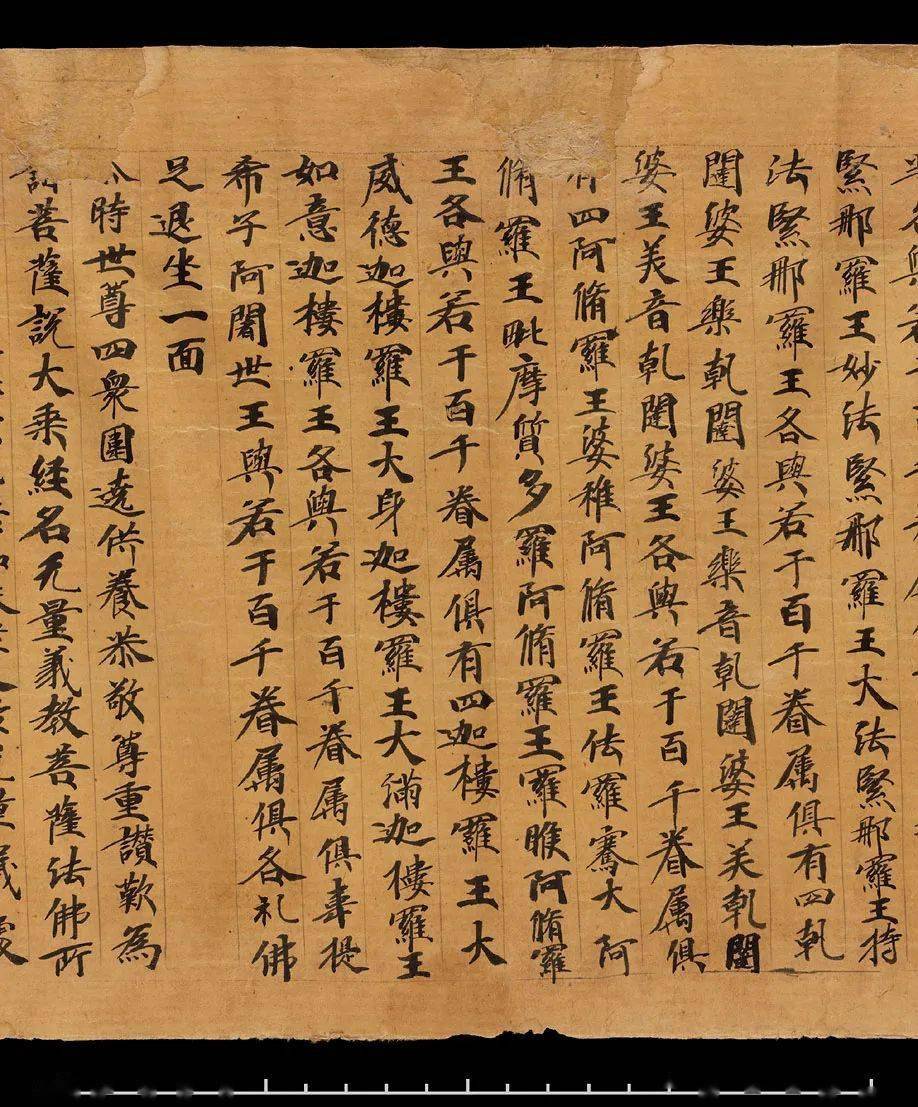 各與若
緊那羅王妙法緊那羅王大法緊那羅王持
法緊那羅王各與若干百千眷属俱有四乹
闥婆王樂乹闥婆王樂音乹闥婆王美乹闥
婆王美音乹闥婆王各與若干百千眷属俱
有四阿脩羅王婆稚阿脩羅王佉羅騫大阿
脩羅王毗摩質多羅阿脩羅王羅睺阿脩羅
王各與若干百千眷属俱有四迦樓羅王大
威德迦樓羅王大身迦樓羅王大滿迦樓羅王
如意迦樓羅王各與若干百千眷属俱韋提
希子阿闍世王與若干百千眷属俱各礼佛
足退坐一面
尒時世尊四衆圍遶供養恭敬尊重讃歎為
諸菩薩說大乘經名无量義教菩薩法佛所